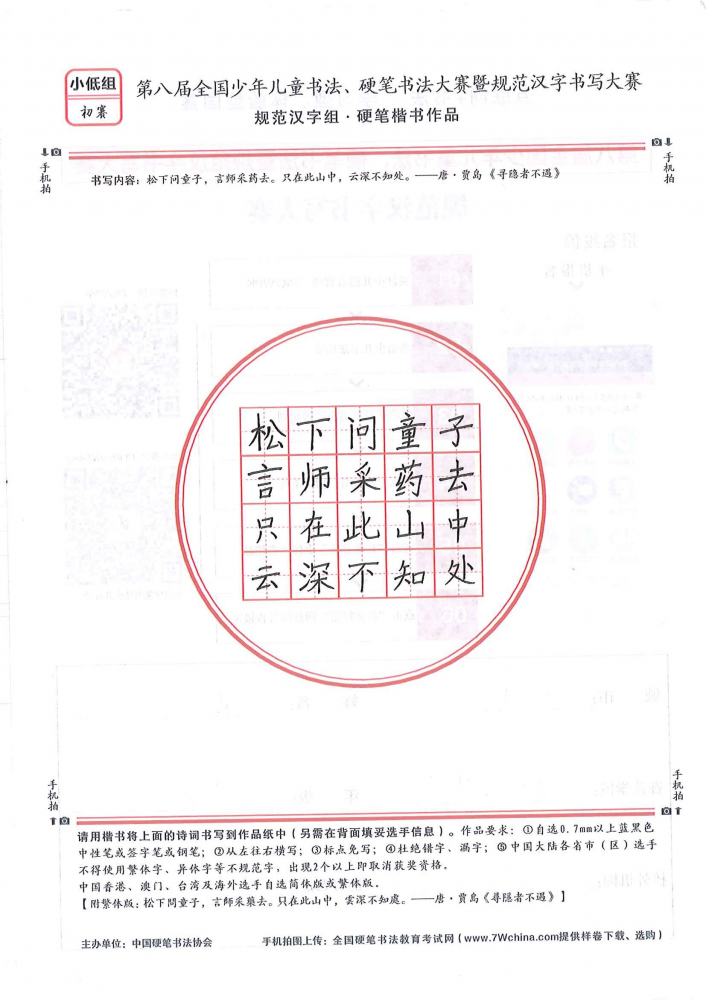 小低组
初赛
第八届全国少年儿童书法、硬笔书法大赛暨规范汉字书写大赛
规范汉字组·硬笔楷书作品
手机拍
手机拍
书写内容：松下问童子，言师采药去。只在此山中，云深不知处。——唐·贾岛《寻隐者不遇》
松下问童子
言师采药去
只在此山中
云深不知处
手机拍
手机拍
请用楷书将上面的诗词书写到作品纸中（另需在背面填妥选手信息）。作品要求：①自选0.7mm以上蓝黑色
中性笔或签字笔或钢笔；②从左往右横写；③标点免写；④杜绝错字、漏字；⑤中国大陆各省市（区）选手
不得使用繁体字、异体字等不规范字，出现2个以上即取消获奖资格。
中国香港、澳门、台湾及海外选手自选简体版或繁体版。
【附繁体版：松下問童子，言師采藥去。只在此山中，雲深不知處。——唐·賈島《尋隱者不遇》】
主办单位：中国硬笔书法协会
手机拍图上传：全国硬笔书法教育考试网（www.7Wchina.com提供样卷下载、选购）